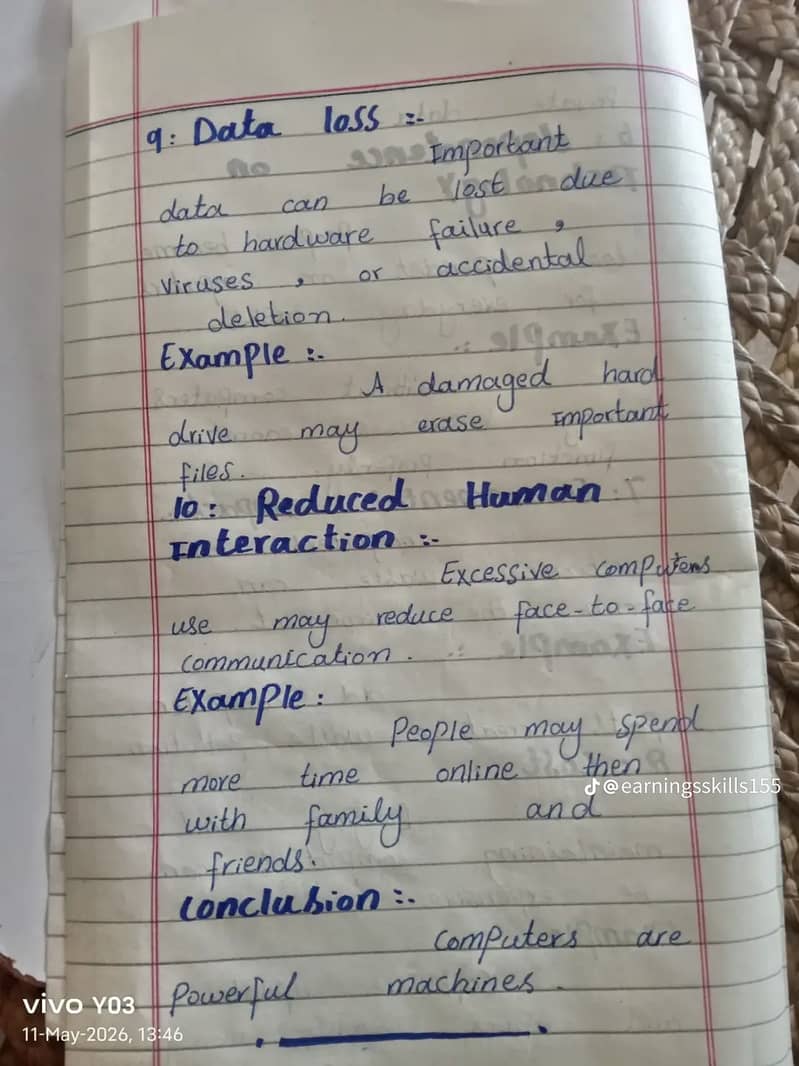 9: Data loss :-
Important
data can be lost due
to hardware failure ,
viruses , or accidental
deletion.
Example :-
A damaged hard
drive may erase important
files.
10: Reduced Human
Interaction :-
Excessive computers
use may reduce face-to-face
communication.
Example:
People may spend
more time online then
with family and
friends.
Conclusion :-
Computers are
Powerful machines.
@earningsskills155
vivo Y03
11-May-2026, 13:46